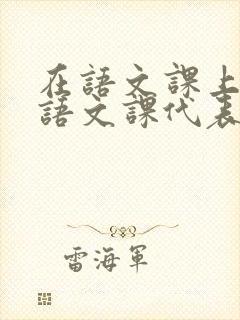 在語文課上
語文課代表
雷海軍